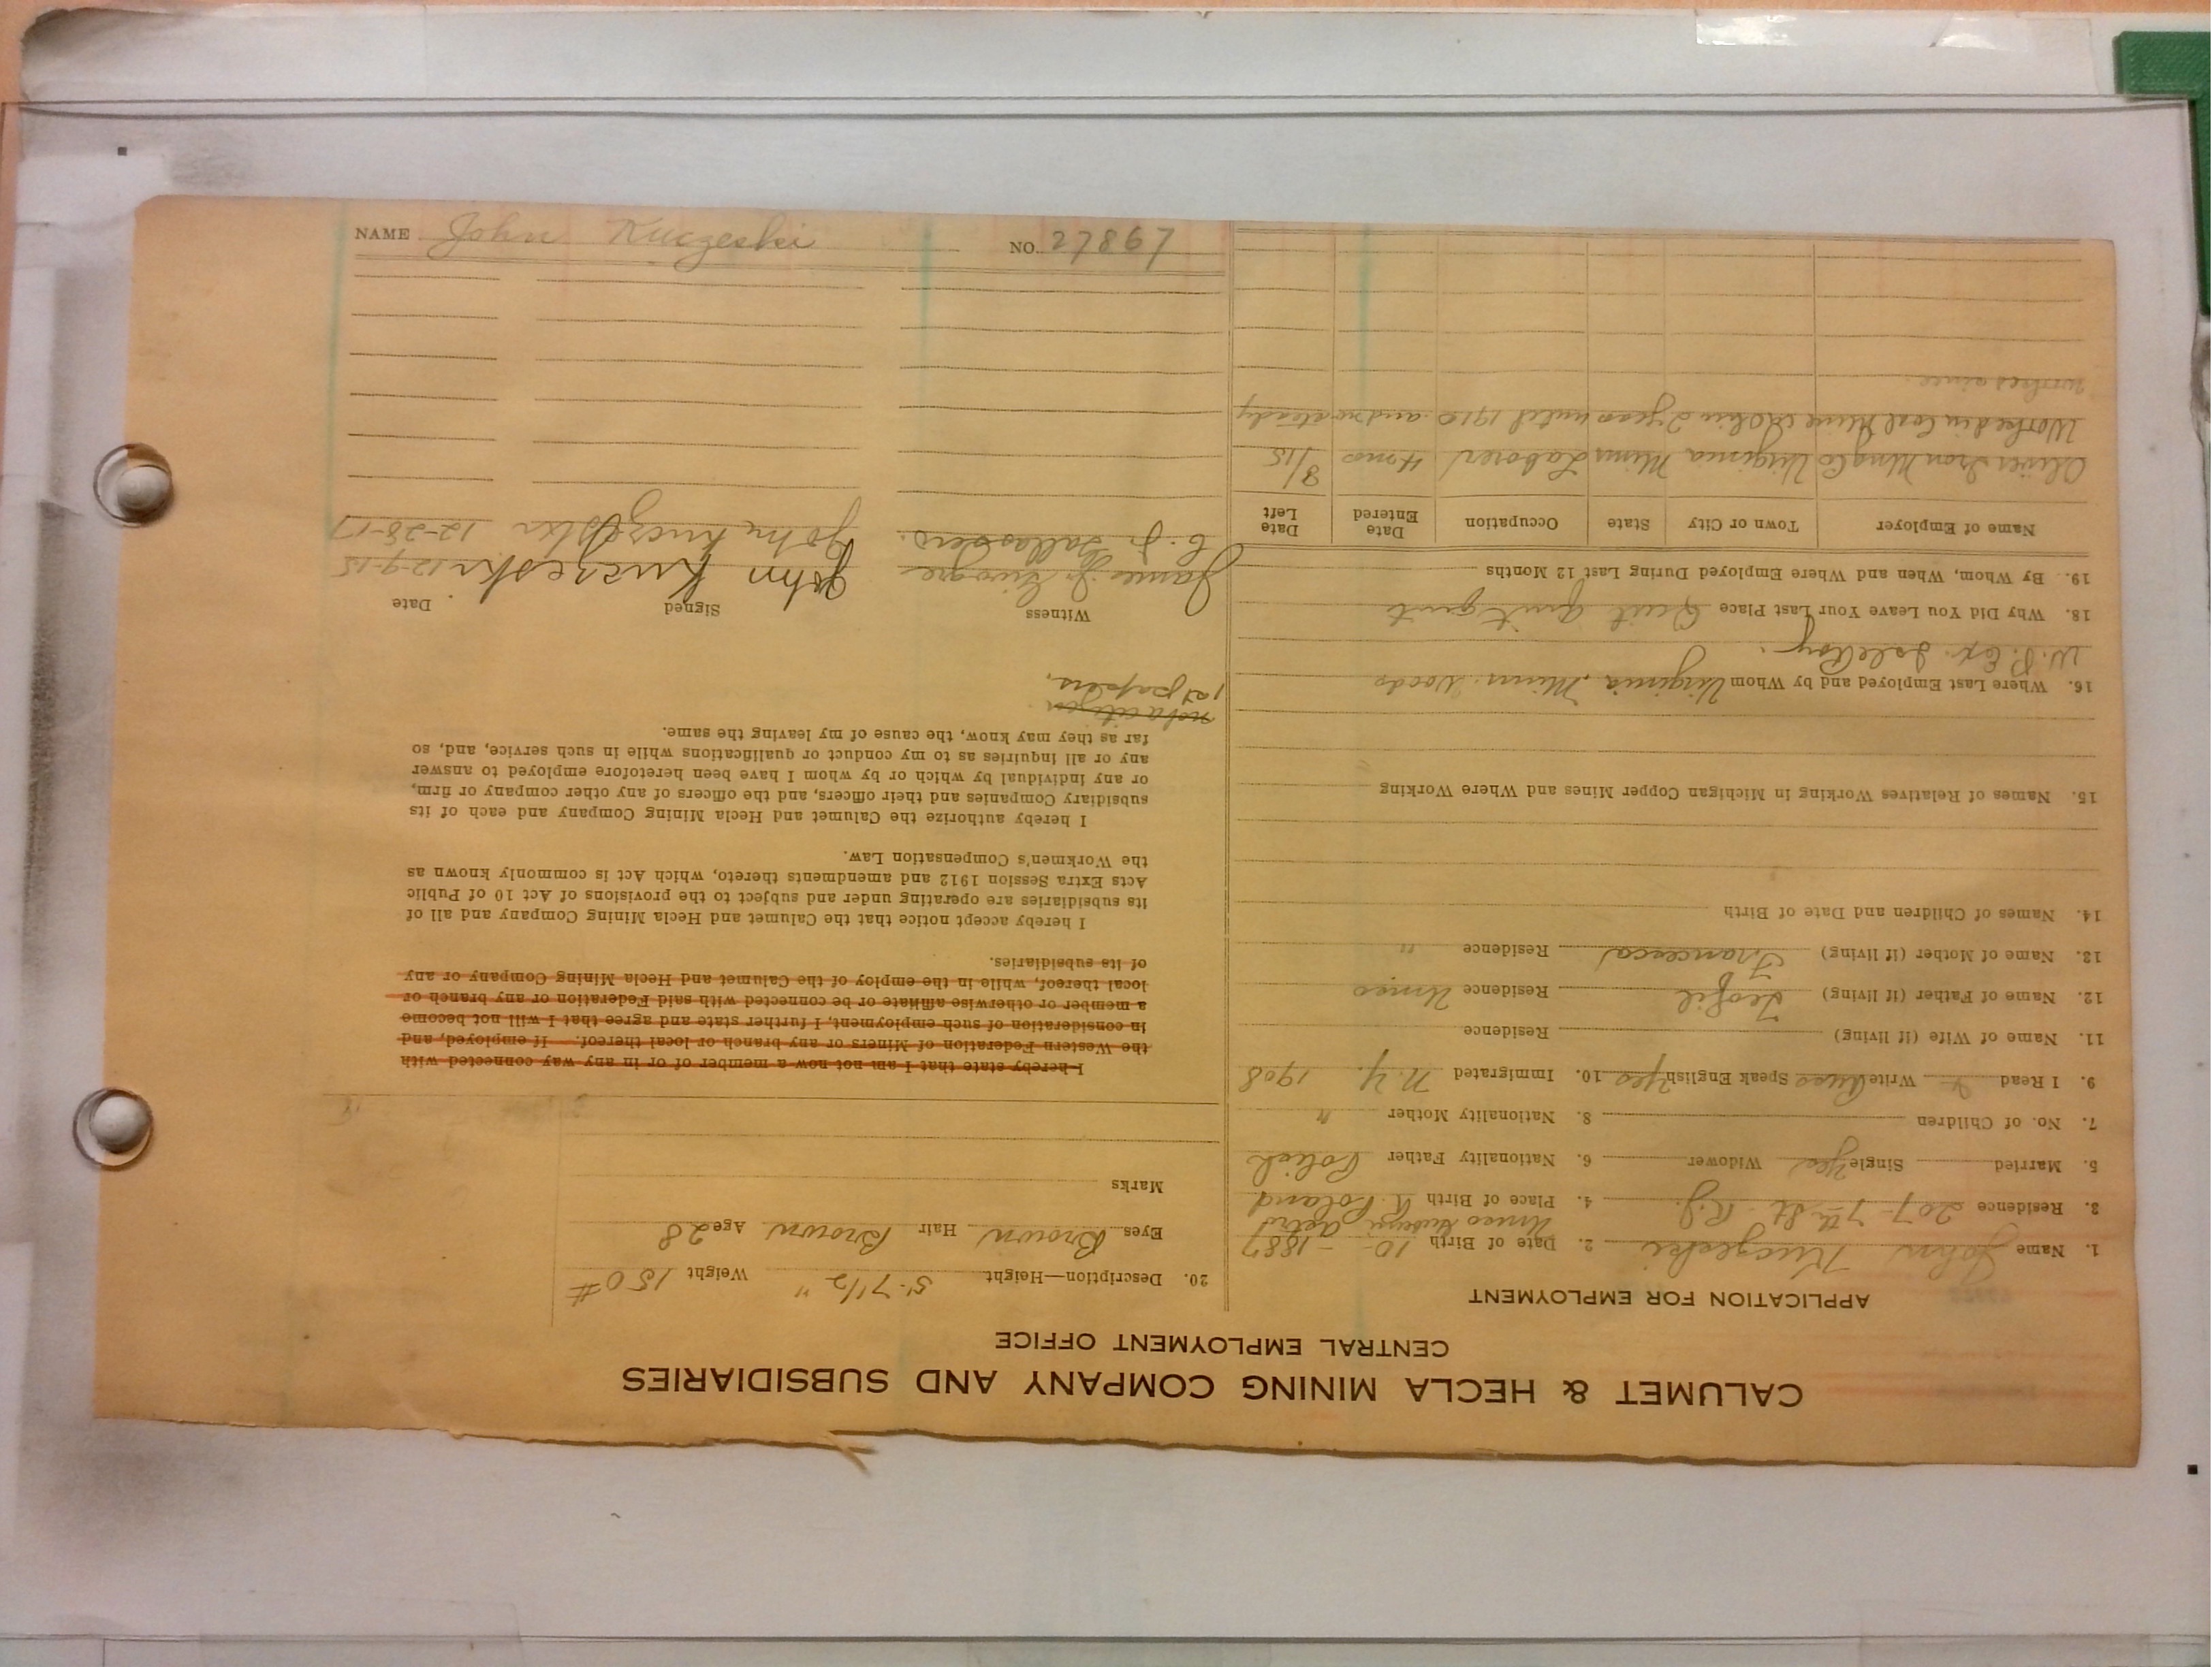 CALUMET & HECLA MINING COMPANY AND SUBSIDIARIES
CENTRAL EMPLOYMENT OFFICE
APPLICATION FOR EMPLOYMENT
1. Name John Kuczeski 2. Date of Birth 10 - 1887
3. Residence 207 - 7th St. R.J. 4. Place of Birth R. Poland
5. Married Single Yes Widower 6. Nationality Father Polish
7. No. of Children 8. Nationality Mother "
9. I Read Write Speak English Yes 10. Immigrated N.Y. 1908
11. Name of Wife (if living) Residence
12. Name of Father (if living) Teofil Residence
13. Name of Mother (if living) Francesca Residence "
14. Names of Children and Date of Birth
15. Names of Relatives Working in Michigan Copper Mines and Where Working
16. Where Last Employed and by Whom Virginia, Minn. Woods
W. P. Ex. Isle Roy.
18. Why Did You Leave Your Last Place Quit quit
19. By Whom, When and Where Employed During Last 12 Months
Name of Employer Town or City State Occupation Date Entered Date Left
Oliver Iron Mng Co Virginia Minn Laborer 4 mos 8/15
Worked in Coal Mine 2 years until 1910 and no steady
worked since
20. Description—Height 5'-7 1/2" Weight 150#
Eyes Brown Hair Brown Age 28
Marks
I hereby state that I am not now a member of or in any way connected with
the Western Federation of Miners or any branch or local thereof. If employed, and
in consideration of such employment, I further state and agree that I will not become
a member or otherwise affiliate or be connected with said Federation or any branch or
local thereof, while in the employ of the Calumet and Hecla Mining Company or any
of its subsidiaries.
I hereby accept notice that the Calumet and Hecla Mining Company and all of
its subsidiaries are operating under and subject to the provisions of Act 10 of Public
Acts Extra Session 1912 and amendments thereto, which Act is commonly known as
the Workmen's Compensation Law.
I hereby authorize the Calumet and Hecla Mining Company and each of its
subsidiary Companies and their officers, and the officers of any other company or firm,
or any individual by which or by whom I have been heretofore employed to answer
any or all inquiries as to my conduct or qualifications while in such service, and, so
far as they may know, the cause of my leaving the same.
not a citizen
1st papers.
Witness Signed Date
James John Kuczeski 12-9-15
C. J. John 12-28-17
NAME John Kuczeski NO. 27867